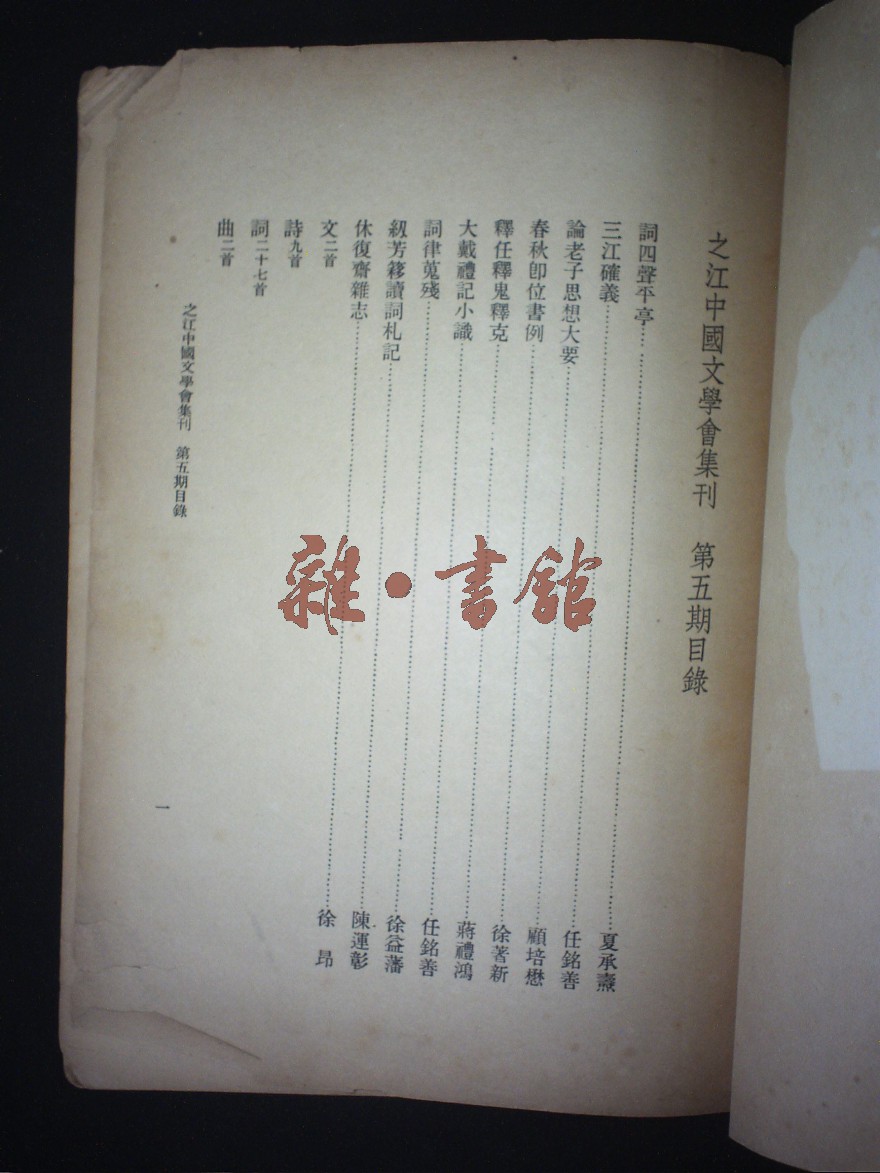 之江中國文學會集刊　第五期目錄
詞四聲平亭……夏承燾
三江確義……任銘善
論老子思想大要……顧培懋
春秋卽位書例……徐著新
釋任釋鬼釋克……蔣禮鴻
大戴禮記小識……任銘善
詞律蒐殘……徐益藩
紉芳簃讀詞札記……陳運彰
休復齋雜志……徐昂
文二首
詩九首
詞二十七首
曲二首
之江中國文學會集刊　第五期目錄
一
雜•書館